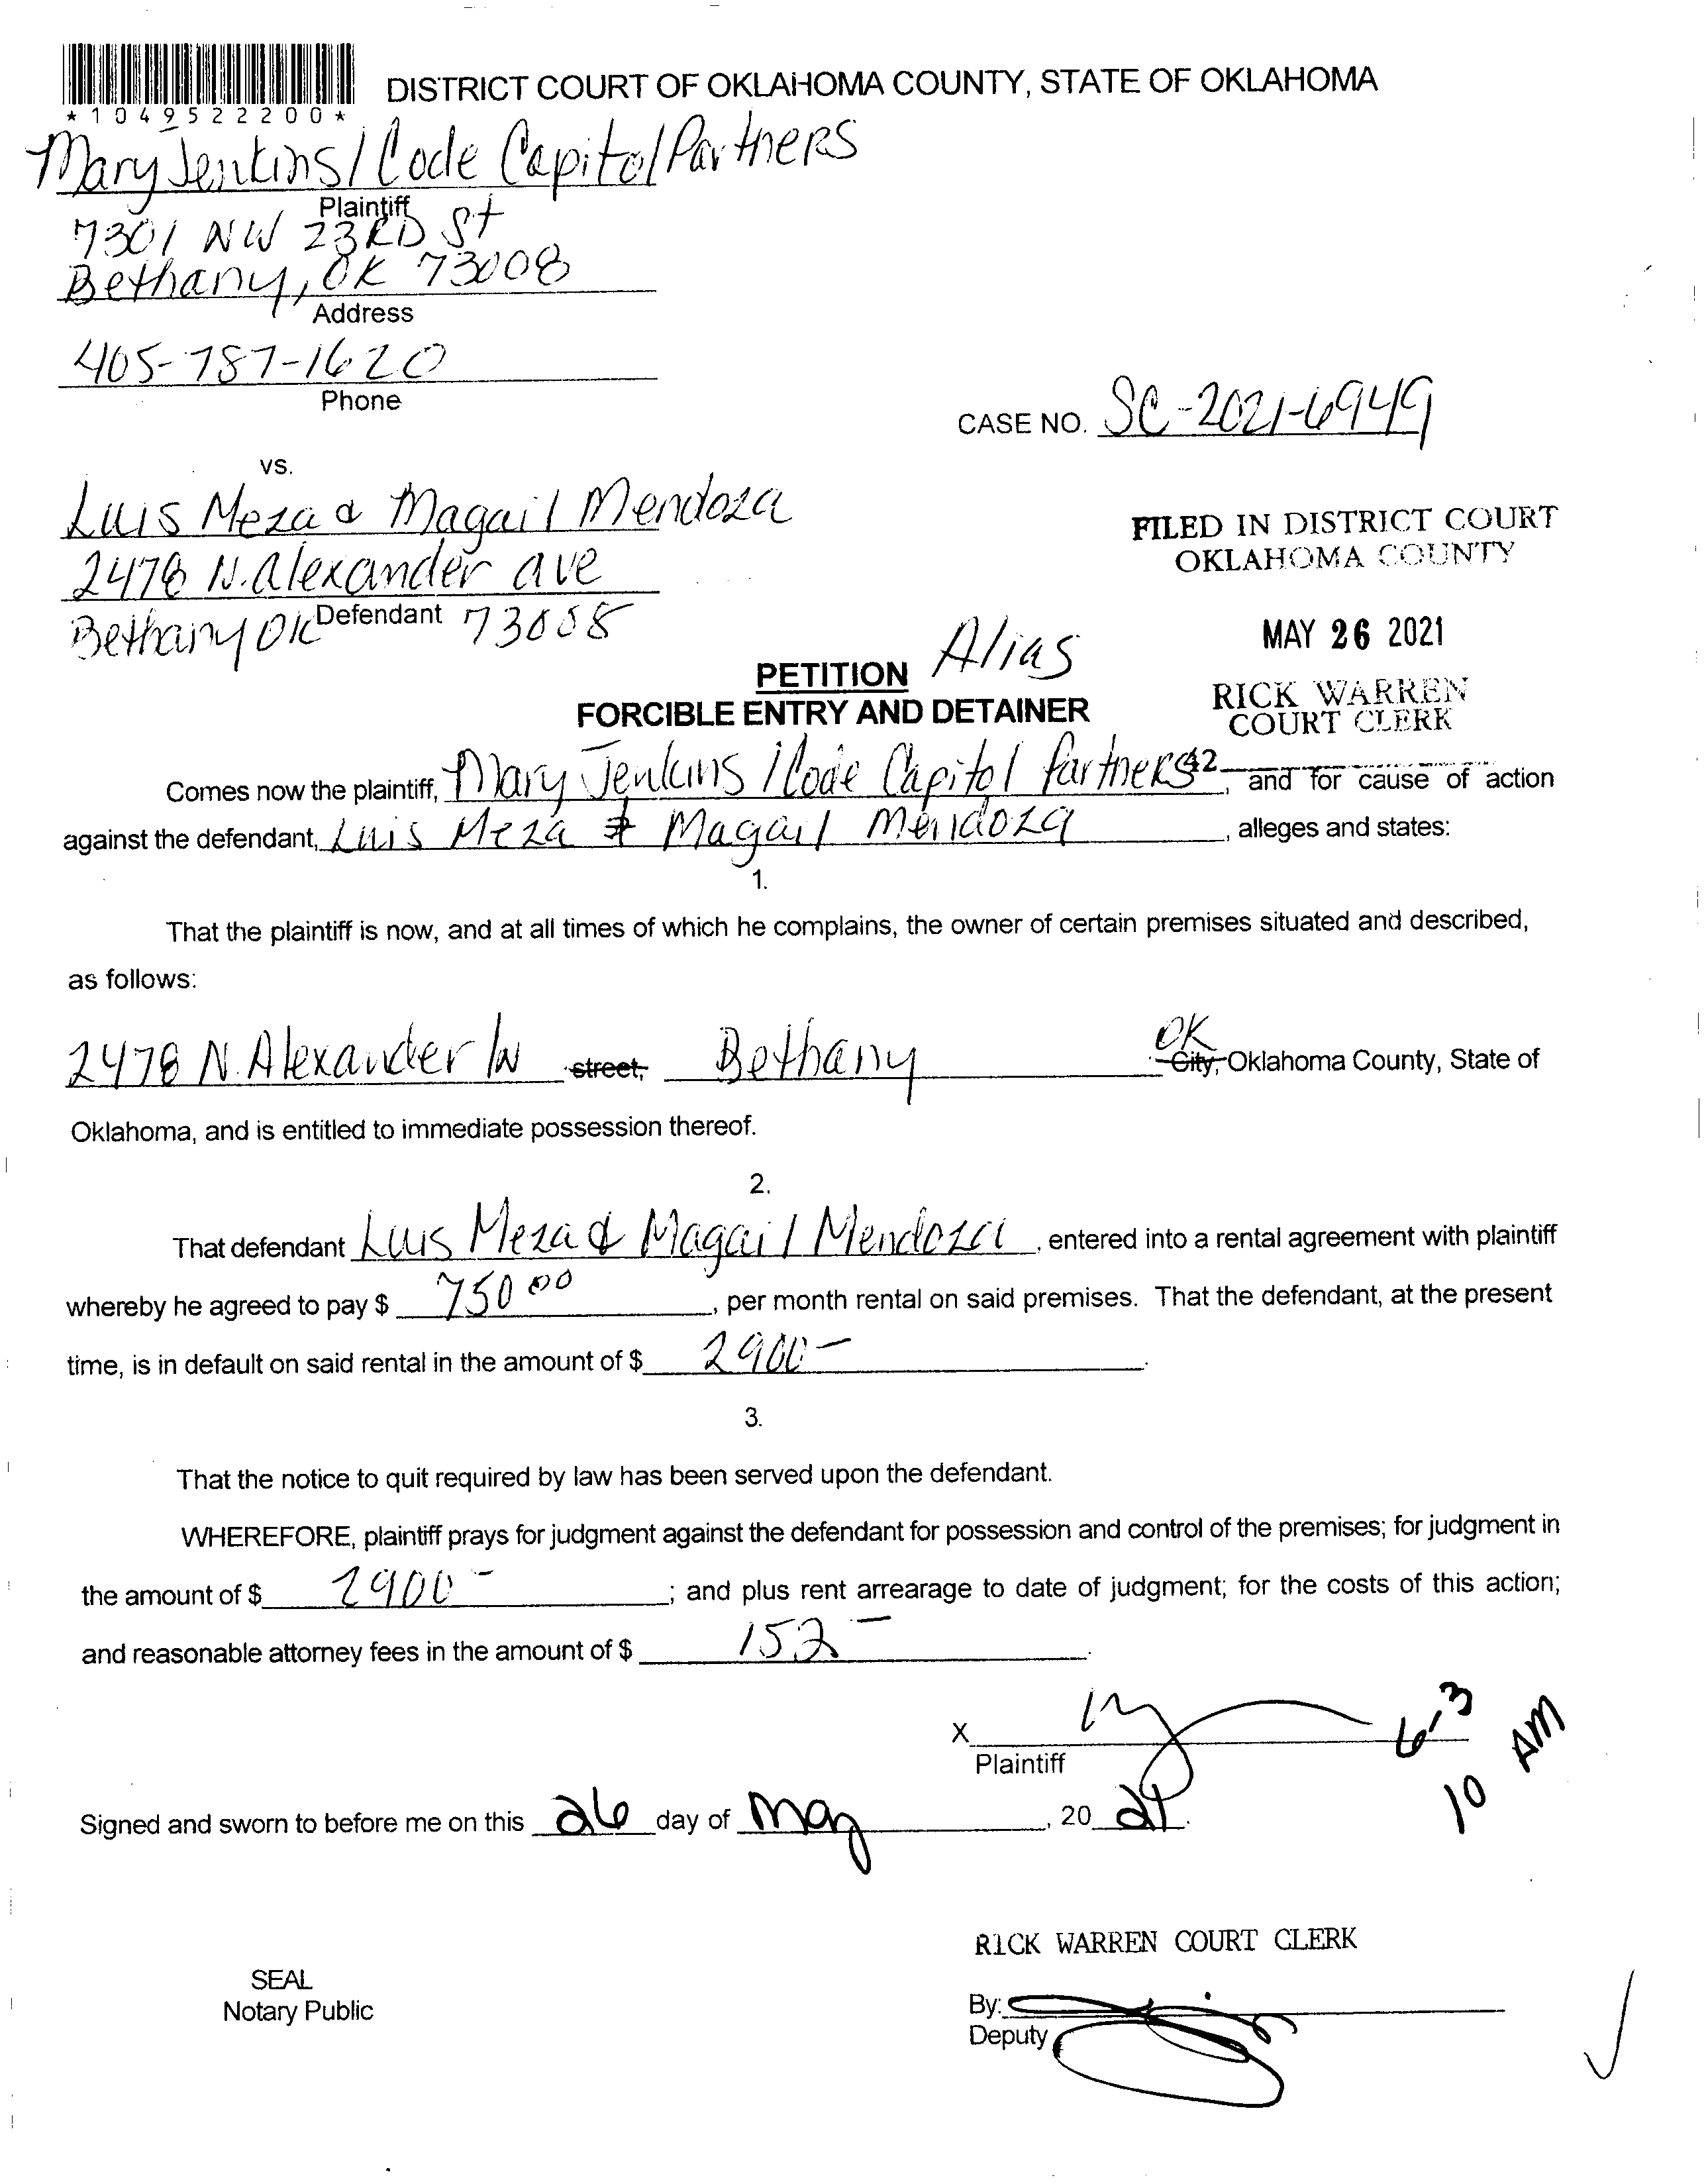 DISTRICT COURT OF OKLAHOMA COUNTY, STATE OF OKLAHOMA
*1049522200*
Mary Jenkins / Code Capitol Partners
Plaintiff
7301 NW 23RD St
Bethany, OK 73008
Address
405-787-1620
Phone
CASE NO. SC-2021-6949
vs.
Luis Meza & Magail Mendoza
2478 N. Alexander ave
Defendant
Bethany OK 73008
FILED IN DISTRICT COURT
OKLAHOMA COUNTY
MAY 26 2021
RICK WARREN
COURT CLERK
42
PETITION Alias
FORCIBLE ENTRY AND DETAINER
Comes now the plaintiff, Mary Jenkins / Code Capitol Partners, and for cause of action
against the defendant, Luis Meza & Magail Mendoza, alleges and states:
1.
That the plaintiff is now, and at all times of which he complains, the owner of certain premises situated and described,
as follows:
2478 N. Alexander ln street, Bethany OK City, Oklahoma County, State of
Oklahoma, and is entitled to immediate possession thereof.
2.
That defendant Luis Meza & Magail Mendoza, entered into a rental agreement with plaintiff
whereby he agreed to pay $ 750 00, per month rental on said premises. That the defendant, at the present
time, is in default on said rental in the amount of $ 2900-.
3.
That the notice to quit required by law has been served upon the defendant.
WHEREFORE, plaintiff prays for judgment against the defendant for possession and control of the premises; for judgment in
the amount of $ 2900-; and plus rent arrearage to date of judgment; for the costs of this action;
and reasonable attorney fees in the amount of $ 152-.
X
Plaintiff
6-3
10 AM
Signed and sworn to before me on this 26 day of May, 20 21.
RICK WARREN COURT CLERK
SEAL
Notary Public
By:
Deputy